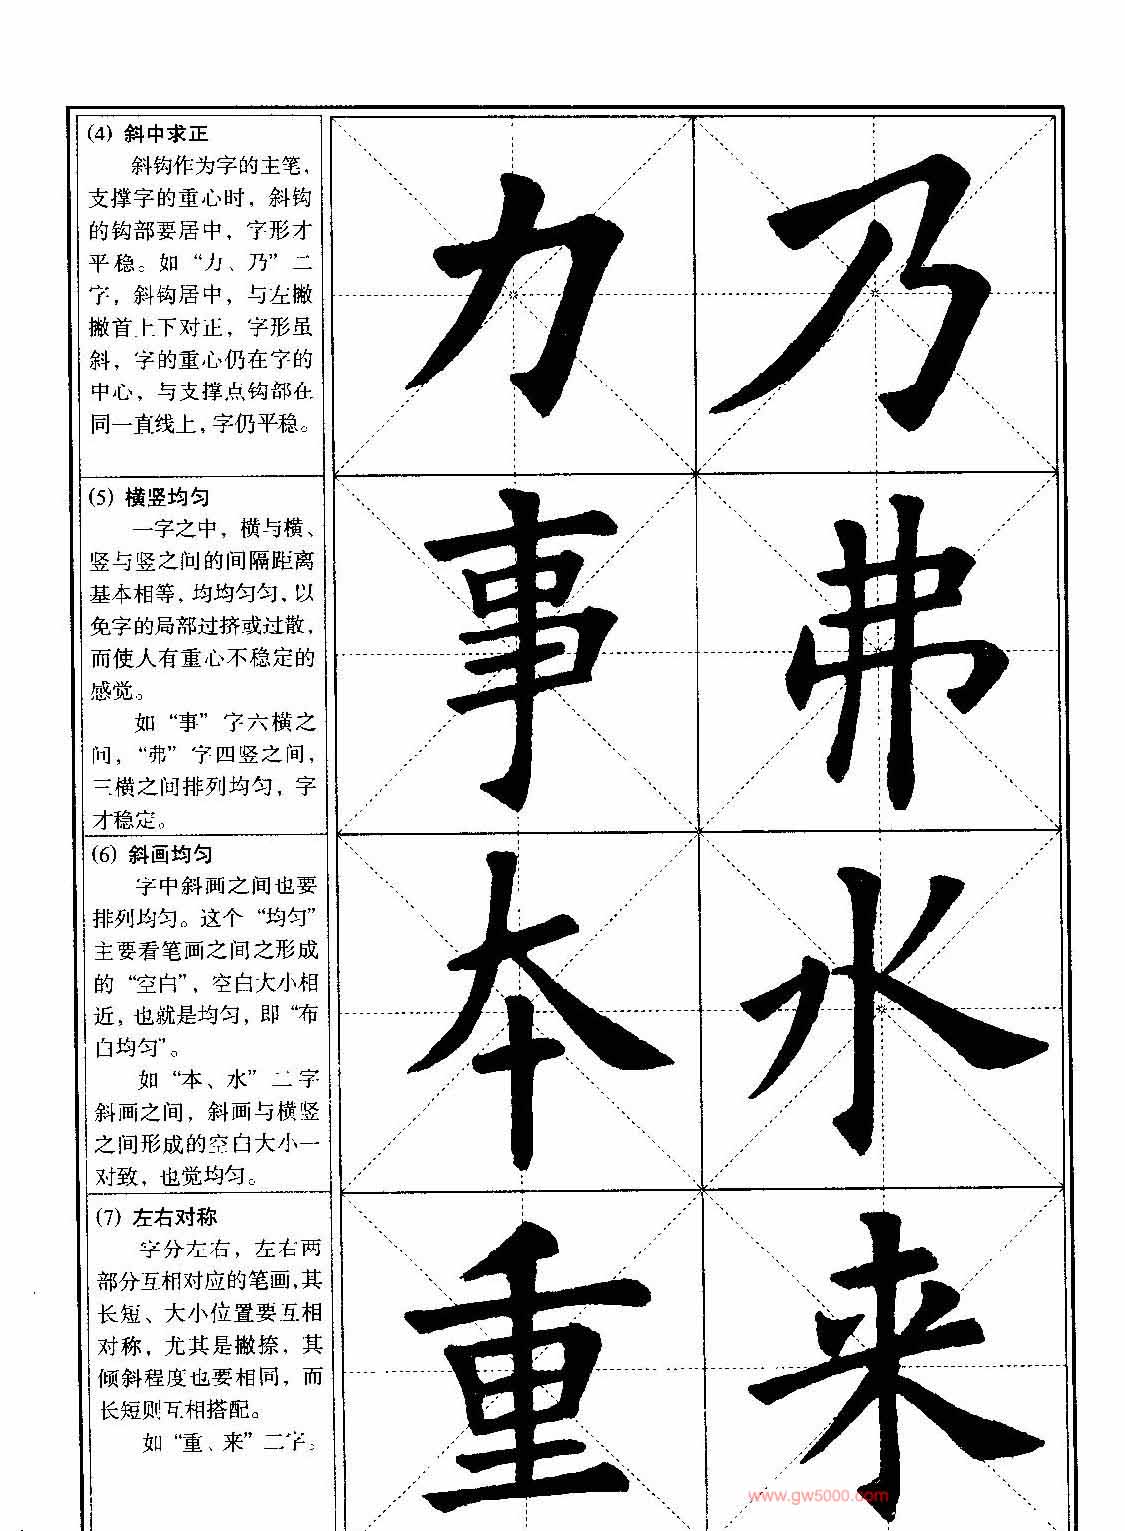 (4) 斜中求正
斜钩作为字的主笔，
支撑字的重心时，斜钩
的钩部要居中，字形才
平稳。如“力、乃”二
字，斜钩居中，与左撇
撇首上下对正，字形虽
斜，字的重心仍在字的
中心，与支撑点钩部在
同一直线上，字仍平稳。
力 乃
(5) 横竖均匀
一字之中，横与横、
竖与竖之间的间隔距离
基本相等，均均匀匀，以
免字的局部过挤或过散，
而使人有重心不稳定的
感觉。
如“事”字六横之
间，“弗”字四竖之间，
三横之间排列均匀，字
才稳定。
事 弗
(6) 斜画均匀
字中斜画之间也要
排列均匀。这个“均匀”
主要看笔画之间之形成
的“空白”，空白大小相
近，也就是均匀，即“布
白均匀”。
如“本、水”二字
斜画之间，斜画与横竖
之间形成的空白大小一
对致，也觉均匀。
本 水
(7) 左右对称
字分左右，左右两
部分互相对应的笔画，其
长短、大小位置要互相
对称，尤其是撇捺，其
倾斜程度也要相同，而
长短则互相搭配。
如“重、来”二字。
重 来
www.gw5000.com